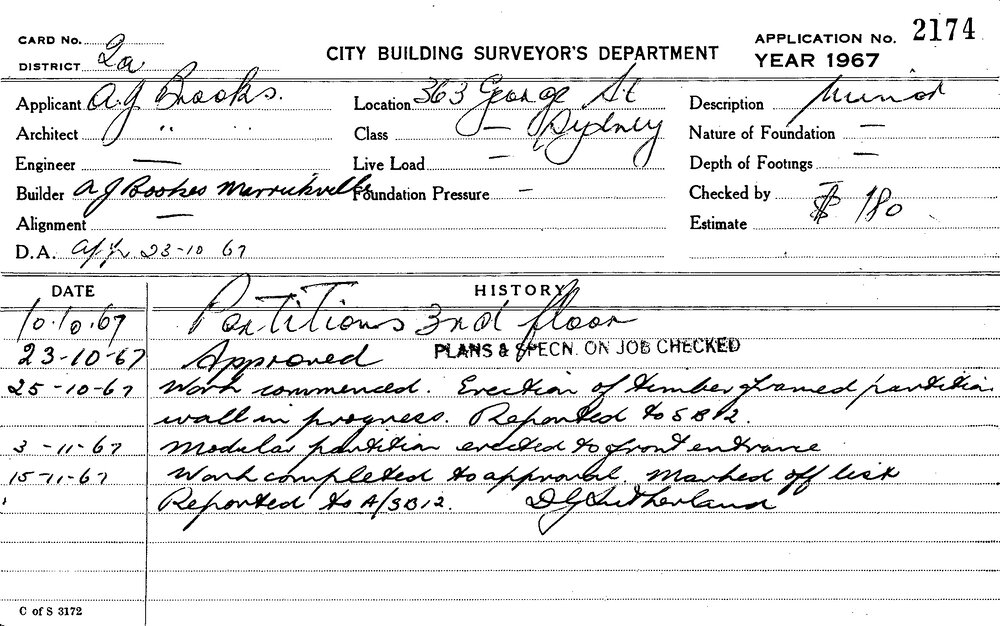 CARD No.
DISTRICT 2a
CITY BUILDING SURVEYOR'S DEPARTMENT
APPLICATION No. 2174
YEAR 1967
Applicant A.J Brooks.
Location 363 George St
Sydney
Description Minor
Architect " "
Class —
Nature of Foundation —
Engineer —
Live Load —
Depth of Footings —
Builder A J Bookes Marrickville
Foundation Pressure —
Checked by
Alignment —
Estimate $ 180
D.A. App 23-10 67
DATE HISTORY
10.10.67 Partitions 3rd floor
23-10-67 Approved PLANS & SPECN. ON JOB CHECKED
25-10-67 Work commenced. Erection of timber framed partition
wall in progress. Reported to SB12.
3-11-67 Modular partition erected to front entrance
15-11-67 Work completed to approval. Marked off list
Reported to A/SB12. D J Sutherland
C of S 3172